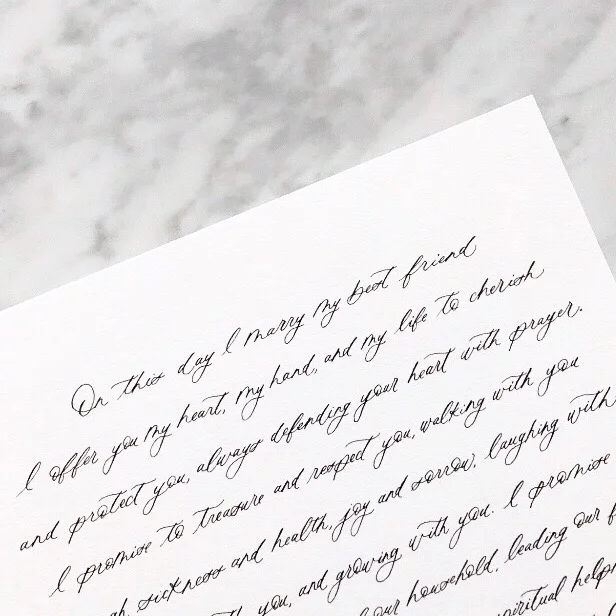 On this day I marry my best friend
I offer you my heart, my hand, and my life to cherish
and protect you, always defending your heart with prayer.
I promise to treasure and respect you, walking with you
sickness and health, joy and sorrow, laughing with
you, and growing with you. I promise
our household, leading our
spiritual